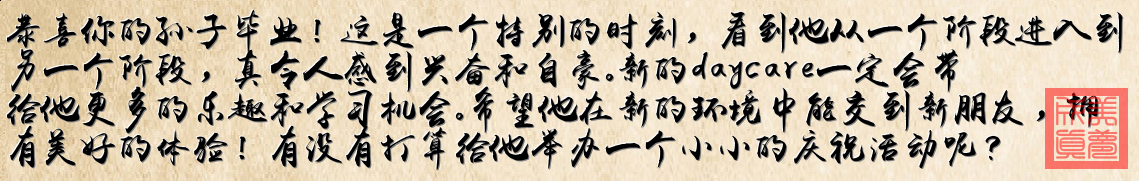 恭喜你的孙子毕业！这是一个特别的时刻，看到他从一个阶段进入到
另一个阶段，真令人感到兴奋和自豪。新的daycare一定会带
给他更多的乐趣和学习机会。希望他在新的环境中能交到新朋友，拥
有美好的体验！有没有打算给他举办一个小小的庆祝活动呢？